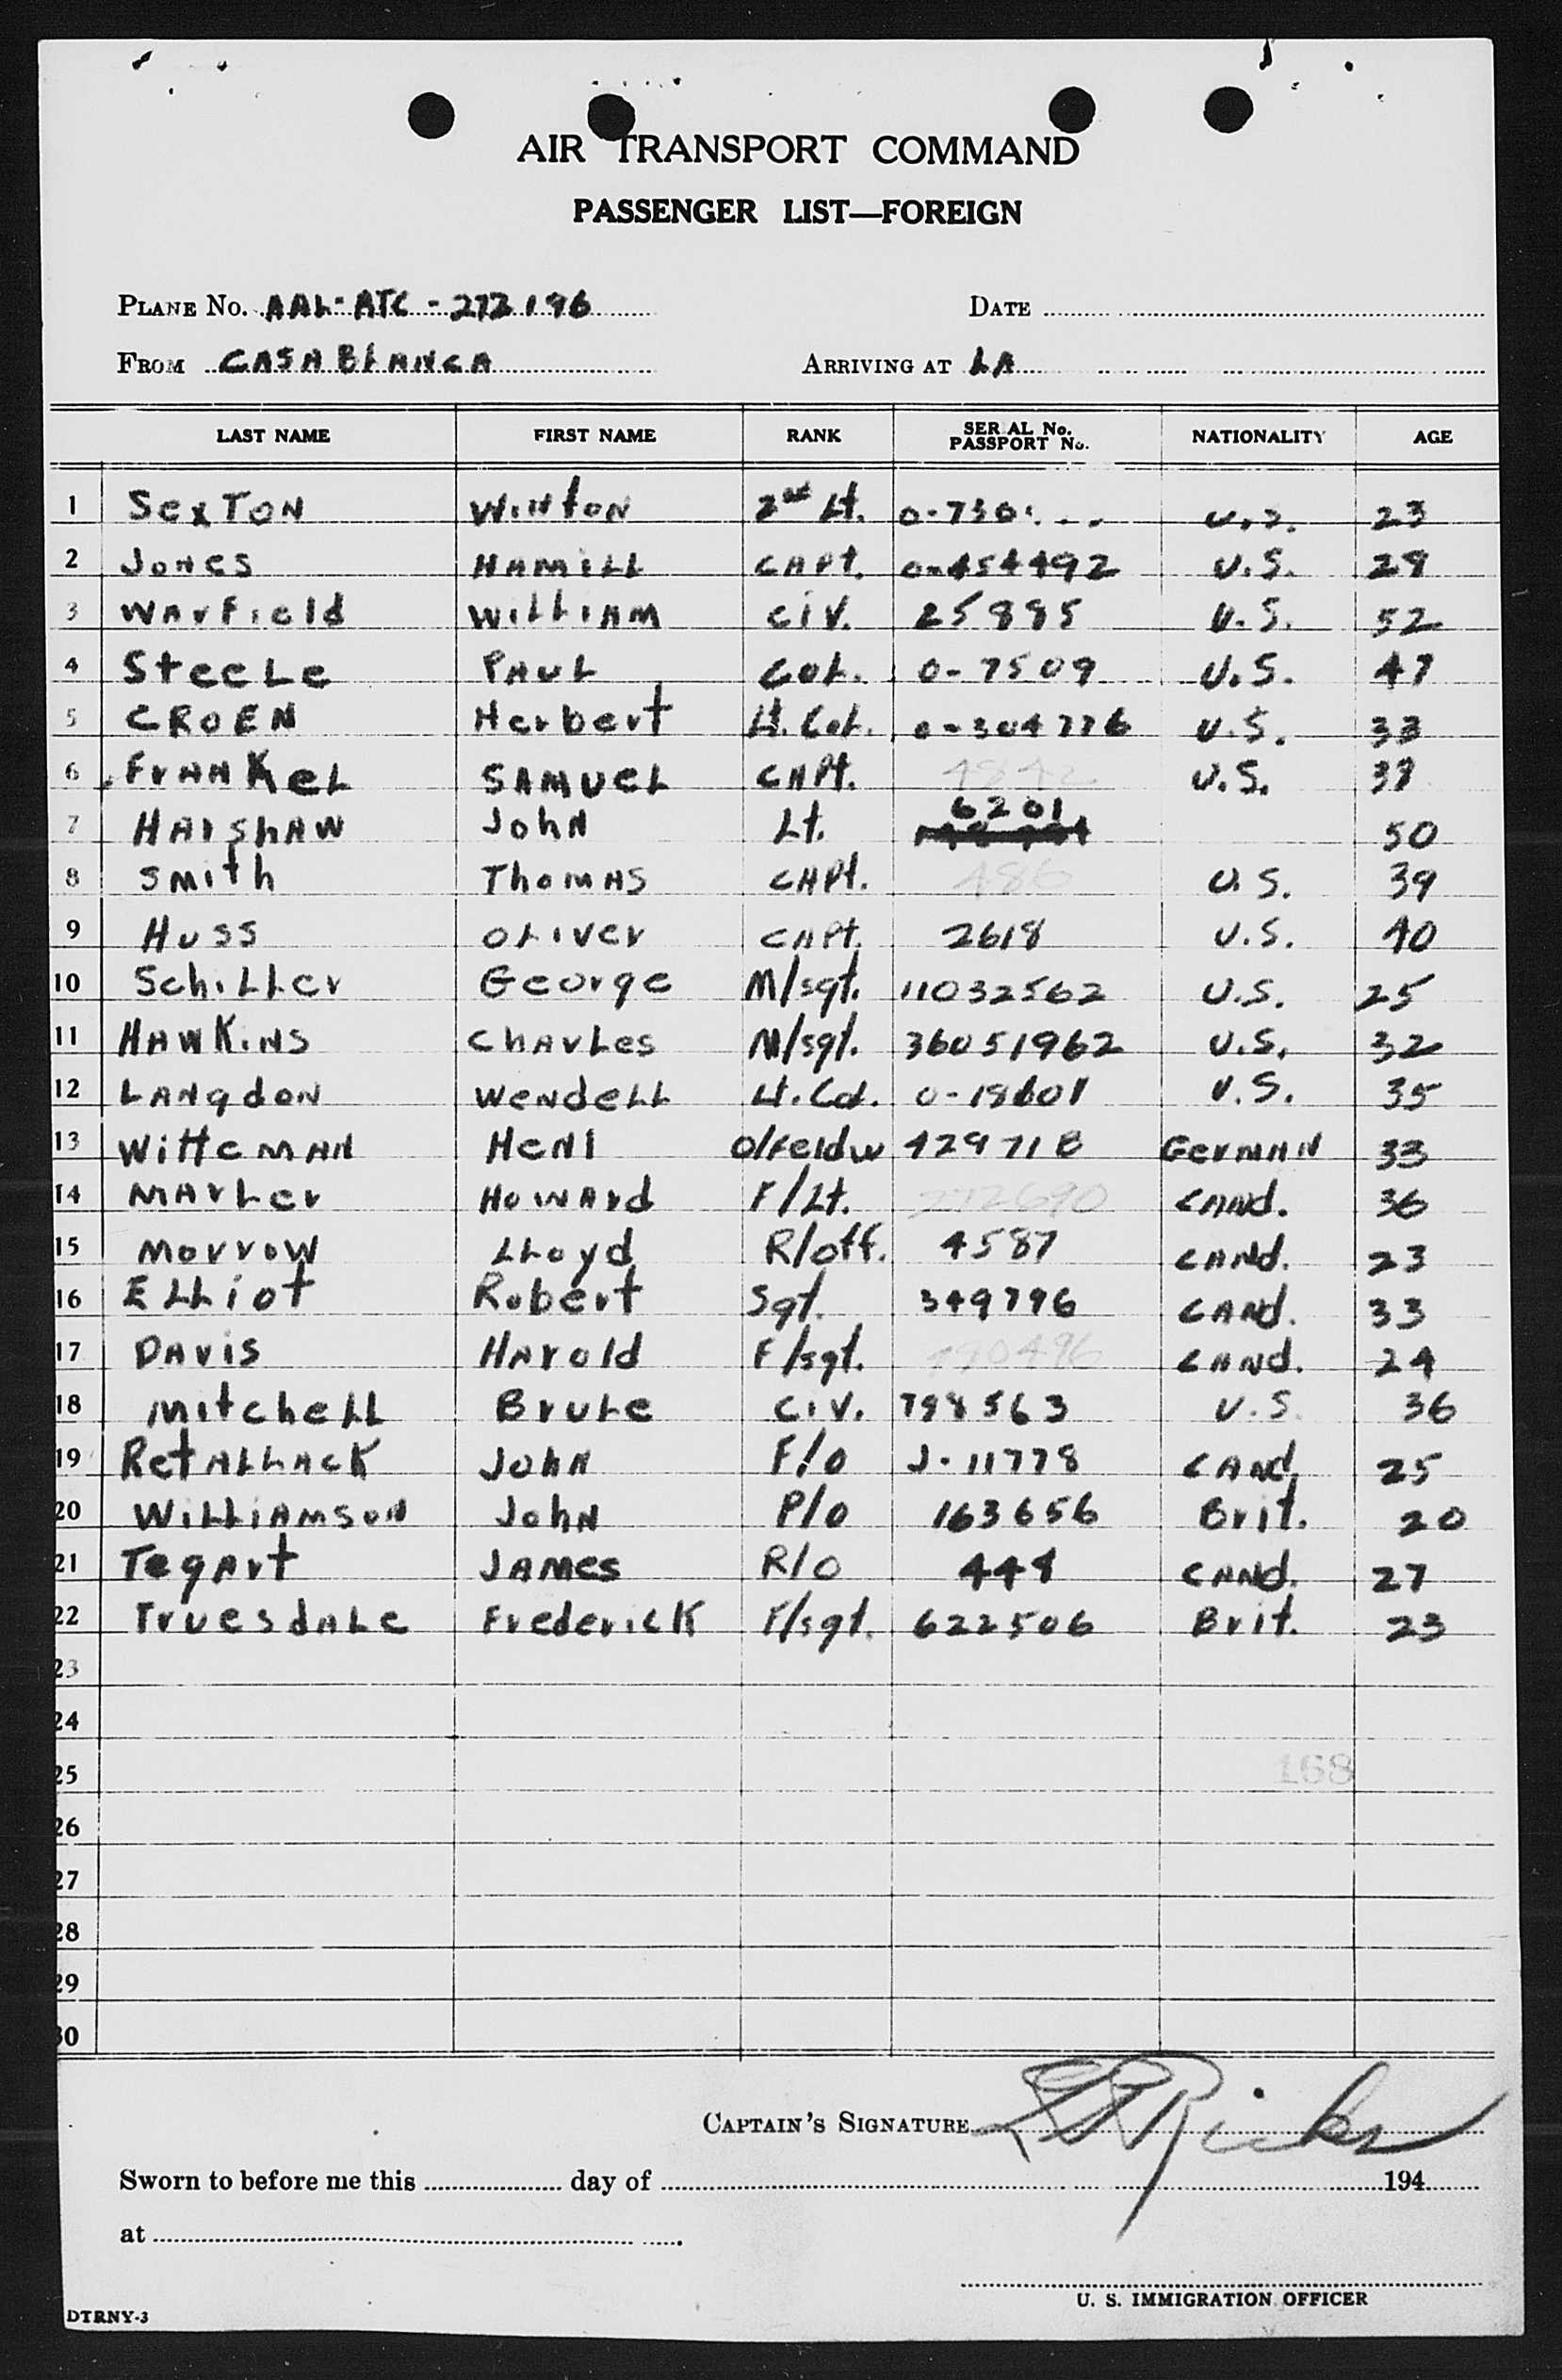 AIR TRANSPORT COMMAND
PASSENGER LIST—FOREIGN
PLANE No. AAL-ATC-272196 DATE
FROM CASABLANCA ARRIVING AT LA
LAST NAME FIRST NAME RANK SERIAL No. PASSPORT No. NATIONALITY AGE
1 SexTON WiNtoN 2nd Lt. U.S. 23
2 JoNes HAMiLL CAPt. 0-454492 U.S. 28
3 WArField WiLLiAM Civ. 25885 U.S. 52
4 SteeLe PAUL CoL. 0-7509 U.S. 47
5 CROEN Herbert Lt. CoL. 0-304776 U.S. 33
6 FrANKeL SAMUeL CAPt. 4842 U.S. 38
7 HArshAW JohN Lt. 6201 50
8 Smith ThoMAS CAPt. 486 U.S. 39
9 Huss OLiver CAPt. 2618 U.S. 40
10 SchiLLer George M/sgt. 11032562 U.S. 25
11 HAWKiNS ChArLes M/sgt. 36051962 U.S. 32
12 LANgdoN WeNdeLL Lt. Col. 0-18601 U.S. 35
13 WitteMAN HeNi O/Feldw 429718 GerMAN 33
14 MArLer HoWArd F/Lt. 272690 CANd. 36
15 MorroW LLoyd R/off. 4587 CANd. 23
16 ELLiot Robert Sgt. 349796 CANd. 33
17 DAvis HArold F/sgt. CANd. 24
18 MitcheLL BruLe Civ. 798563 U.S. 36
19 RetALLAcK JohN F/o J-11778 CANd. 25
20 WiLLiAMsoN JohN P/o 163656 Brit. 20
21 TegArt JAMes R/o 448 CANd. 27
22 TruesdALe FredericK F/sgt. 622506 Brit. 23
23
24
25 168
26
27
28
29
30
CAPTAIN'S SIGNATURE
Sworn to before me this day of 194
at
U. S. IMMIGRATION OFFICER
DTRNY-3